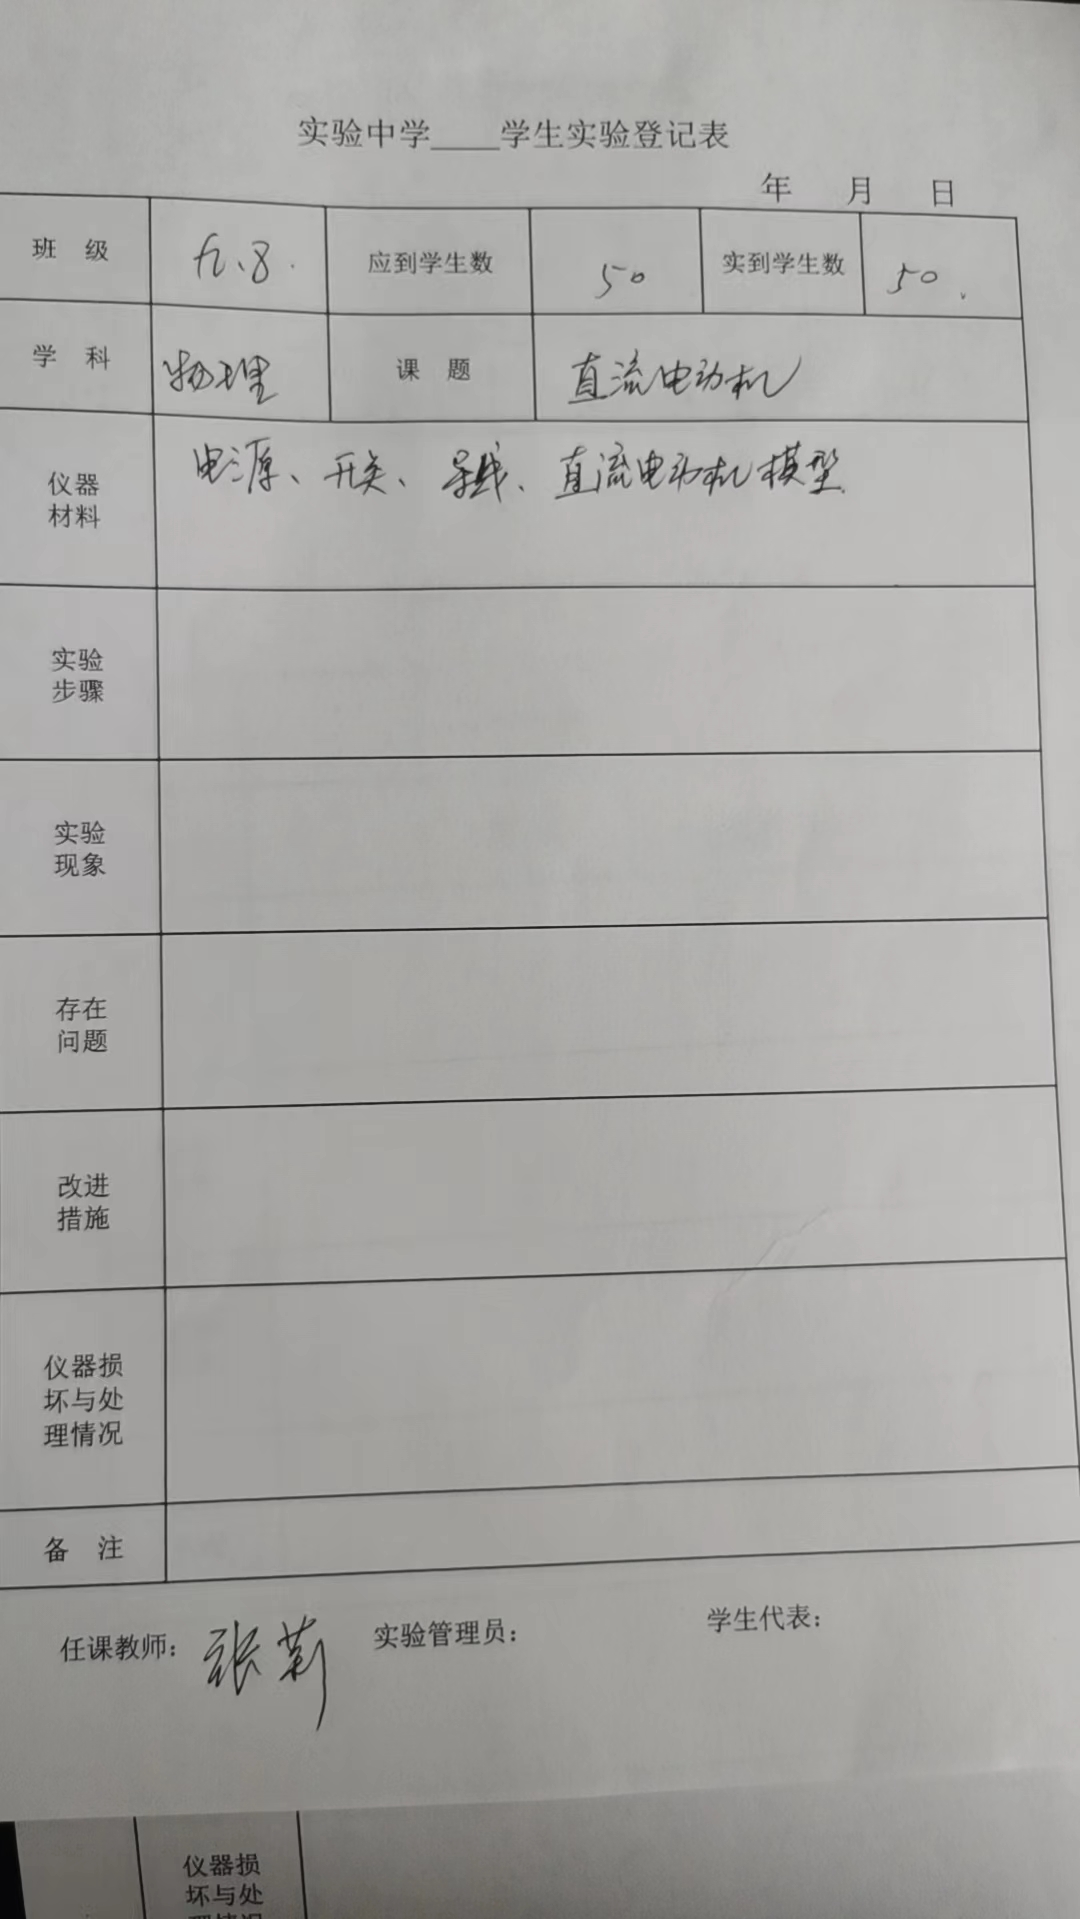 实验中学____学生实验登记表
年 月 日
班 级 九.8. 应到学生数 50 实到学生数 50.
学 科 物理 课 题 直流电动机
仪器
材料
电源、开关、导线、直流电动机模型
实验
步骤
实验
现象
存在
问题
改进
措施
仪器损
坏与处
理情况
备 注
任课教师: 张莉 实验管理员: 学生代表:
仪器损
坏与处
理情况